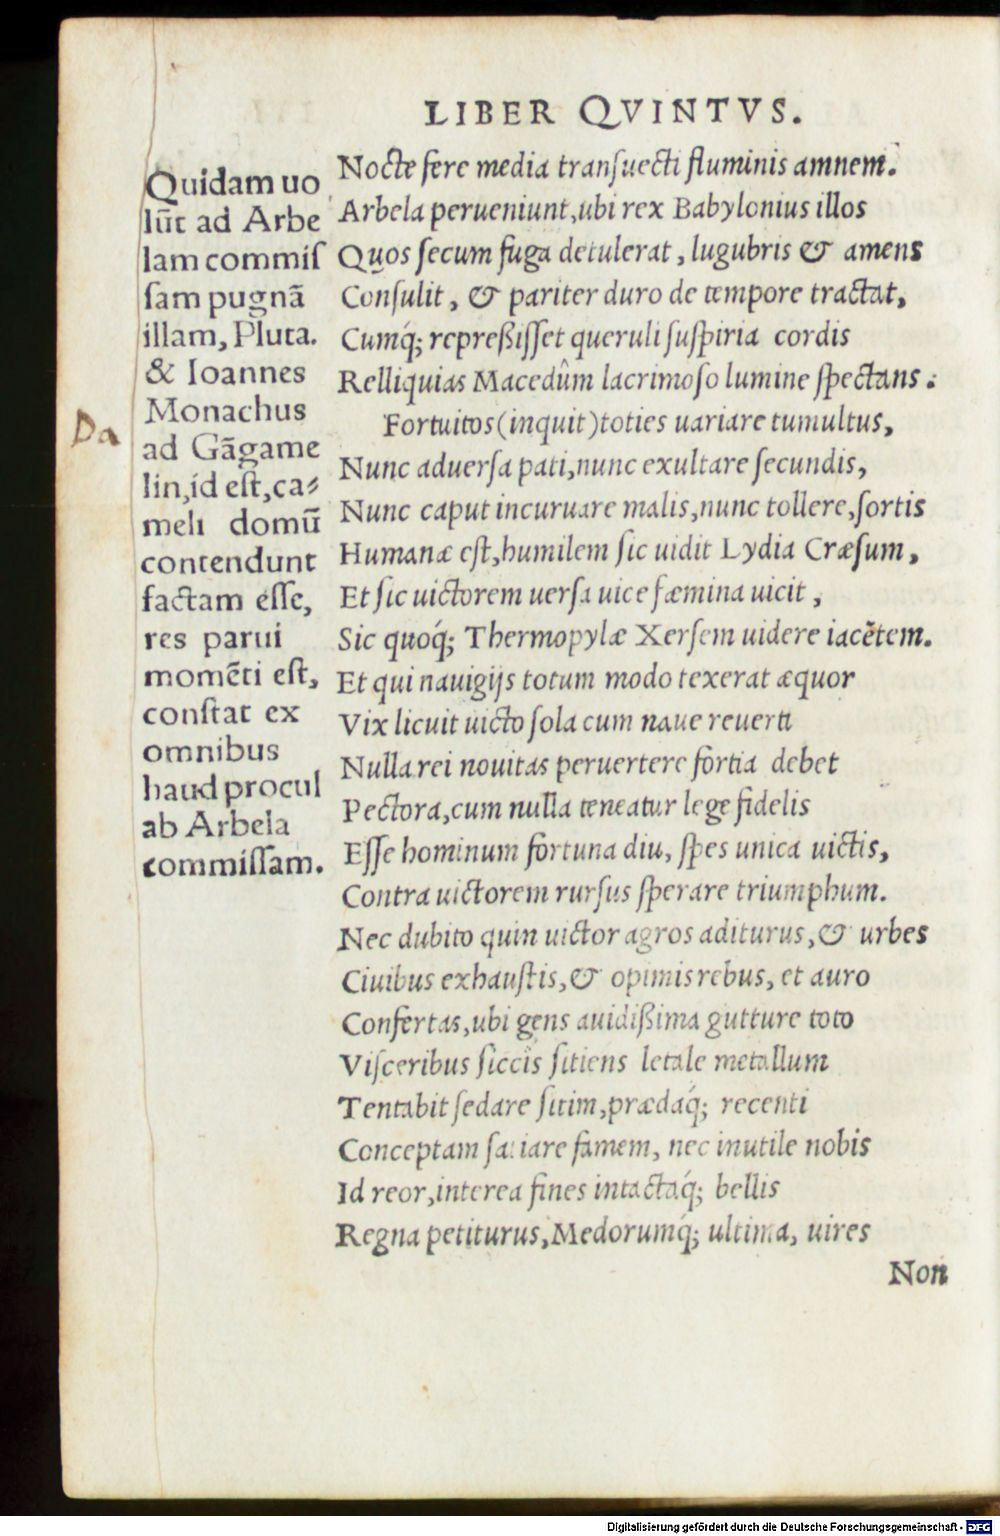 LIBER QVINTVS.
Quidam uo
lũt ad Arbe
lam commiſ
ſam pugnã
illam, Pluta.
& Ioannes
Monachus
ad Gãgame
lin, id eſt, ca⸗
meli domũ
contendunt
factam eſſe,
res parui
momẽti eſt,
conſtat ex
omnibus
haud procul
ab Arbela
commiſſam.
Da
Nocte fere media tranſuecti fluminis amnem.
Arbela perueniunt, ubi rex Babylonius illos
Quos ſecum fuga detulerat, lugubris & amens
Conſulit, & pariter duro de tempore tractat,
Cumq́; repreßiſſet queruli ſuſpiria cordis
Relliquias Macedûm lacrimoſo lumine ſpectans.
Fortuitos (inquit) toties uariare tumultus,
Nunc aduerſa pati, nunc exultare ſecundis,
Nunc caput incuruare malis, nunc tollere, ſortis
Humanæ eſt, humilem ſic uidit Lydia Cræſum,
Et ſic uictorem uerſa uice fæmina uicit,
Sic quoq́; Thermopylæ Xerſem uidere iacẽtem.
Et qui nauigijs totum modo texerat æquor
Vix licuit uicto ſola cum naue reuerti
Nulla rei nouitas peruertere fortia debet
Pectora, cum nulla teneatur lege fidelis
Eſſe hominum fortuna diu, ſpes unica uictis,
Contra uictorem rurſus ſperare triumphum.
Nec dubito quin uictor agros aditurus, & urbes
Ciuibus exhauſtis, & opimis rebus, et auro
Confertas, ubi gens auidißima gutture toto
Viſceribus ſiccis ſitiens letale metallum
Tentabit ſedare ſitim, prædaq́; recenti
Conceptam ſatiare famem, nec inutile nobis
Id reor, interea fines intactaq́; bellis
Regna petiturus, Medorumq́; ultima, uires
Non
Digitalisierung gefördert durch die Deutsche Forschungsgemeinschaft - DFG